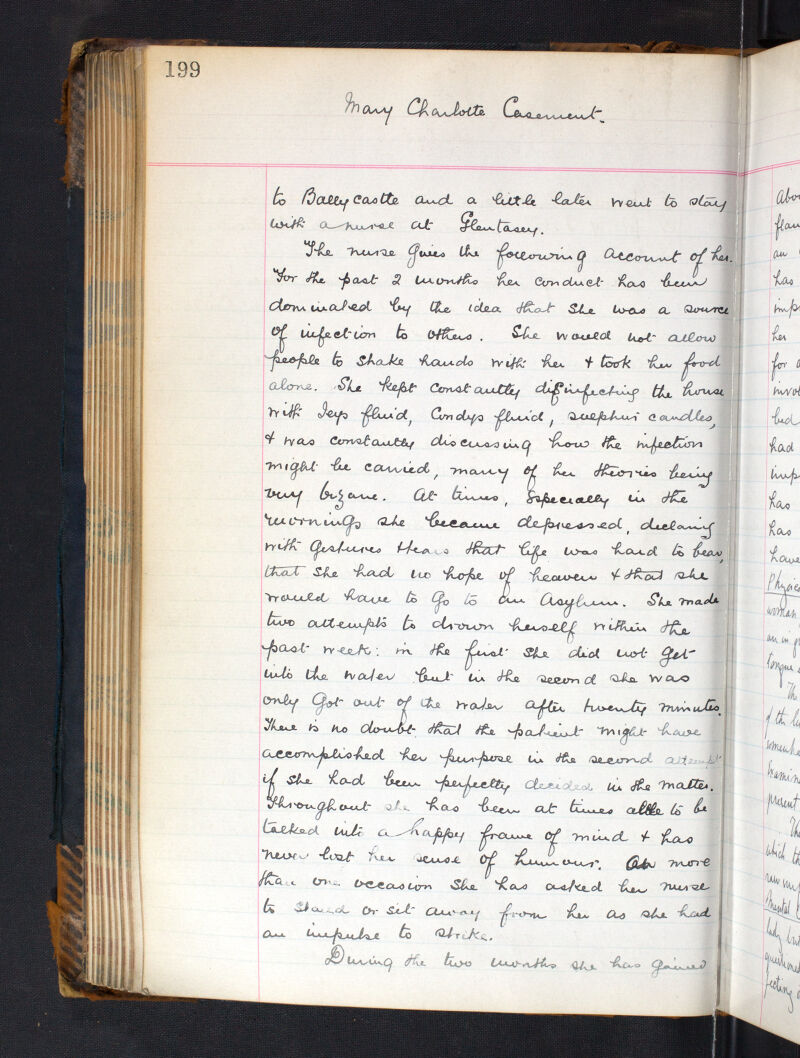 199
Mary Charlotte Casement.
to Ballycastle and a little later went to stay
with a nurse at Glentasey.
The nurse gives the following account of her.
For the past 2 months her conduct has been
dominated by the idea that she was a source
of infection to others. She would not allow
people to shake hands with her & took her food
alone. She kept constantly disinfecting the house
with Jeys fluid, Condys fluid, sulphur candles,
& was constantly discussing how the infection
might be carried, many of her theories being
very bizarre. At times, especially in the
mornings she became depressed, declaring
with gestures & tears that life was hard to bear,
that she had no hope of heaven & that she
would have to go to an Asylum. She made
two attempts to drown herself within the
past week: in the first she did not get
into the water but in the second she was
only got out of the water after twenty minutes.
There is no doubt that the patient might have
accomplished her purpose in the second attempt
if she had been perfectly decided in the matter.
Throughout she has been at times able to be
talked into a happy frame of mind & has
never lost her sense of humour. On more
than one occasion she has asked her nurse
to stand or sit away from her as she had
an impulse to strike.
During the two months she has gained
an
has
her
for
bed
had
has
has
have